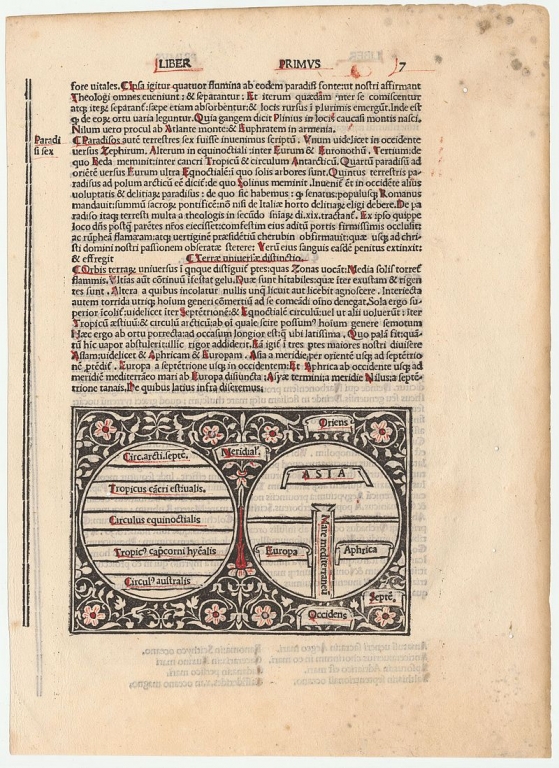 LIBER PRIMVS 7
fore vitales. Ipsa igitur quatuor flumina ab eodem paradisi fonte: ut nostri affirmant
Theologi omnes eueniunt: & separantur. Et iterum quædam inter se comiscentur
separant: sæpe etiam absorbentur: & locis rursus i plurimis emergunt. Inde est
de eorum ortu varia leguntur. Quia gangem dicit Plinius in locis caucasi montis nasci.
Nilum uero procul ab Atlante monte: & Euphratem in armenia.
Paradi
si sex
Paradisos autē terrestres sex fuisse inuenimus scriptū. Vnum uidelicet in occidente
uersus Zephirum. Alterum in equinoctiali: inter Eurum & Euronothū. Tertium: de
quo Beda meminit: inter cancri Tropicū & circulum Antarcticū. Quartū paradisū ad
oriētē uersus Eurum ultra Eqnoctialē: i quo solis arbores sunt. Quintus terrestris pa-
radisus ad polum arcticū
uoluptatis & delitiarum paradisus: de quo sic habemus: senatus: populusque Romanus
Italiæ horto delitiarum eligi debere. De pa
radiso itaque terresti multa a theologis in
ac rūphea flāmam: atque uertigine præsidētiū cherubin obfirmauit: quæ usque ad chri-
sti domini nostri passionem obseratæ steterē. Verū eius sanguis easdē penitus extinxit:
& effregit Terræ uniuersæ distinctio.
Orbis terræ uniuersus i qnque distiguit ptes: quas Zonas uocāt. Media solis torref
flammis. Vltias aūt cōtinuū ifestat gelu. Quæ sunt hitabiles: quæ iter exustam & rigen
tes sunt. Altera a quibus incolatur nullis unq licuit aut licebit agnoscere. Interiecta
autem torrida utrique hoium generi cōmertiū ad se comeādi oīno denegat. Sola ergo su-
perior icolit: uidelicet iter Septētrionē: & Eqnoctialē circulū: uel ut alii uoluerūt: iter
Tropicū æstiuū: & circulū arcticū: ab oi quale scire possum hoium genere semotum
Hæc ergo ab ortu porrecta: ad occasum longior est ubi latissima. Quo palā fit: quā-
tū hic vapor abstulerit: illic rigor addiderit. Ea igit i tres ptes maiores nostri diuisere
Asiam: uidelicet & Aphricam & Europam. Asia a meridie, per orientē usque ad septētrio
nē prēdit. Europa a septētrione usque in occidentem: Et Aphrica ab occidente usque ad
meridiē mediterraneo mari ab Europa disiuncta: Asyæ termini a meridie Nilus: a septē-
trione tanais. De quibus latius infra disseremus.
Oriens.
Circ. arcti. septē.
Meridiaľ.
ASIA
Tropicus cācri estiualis.
Circulus equinoctialis
Mare mediterraneū
Tropicꝰ capcorni hyēalis
Europa
Aphrica
Circulꝰ australis
Septē.
Occidens